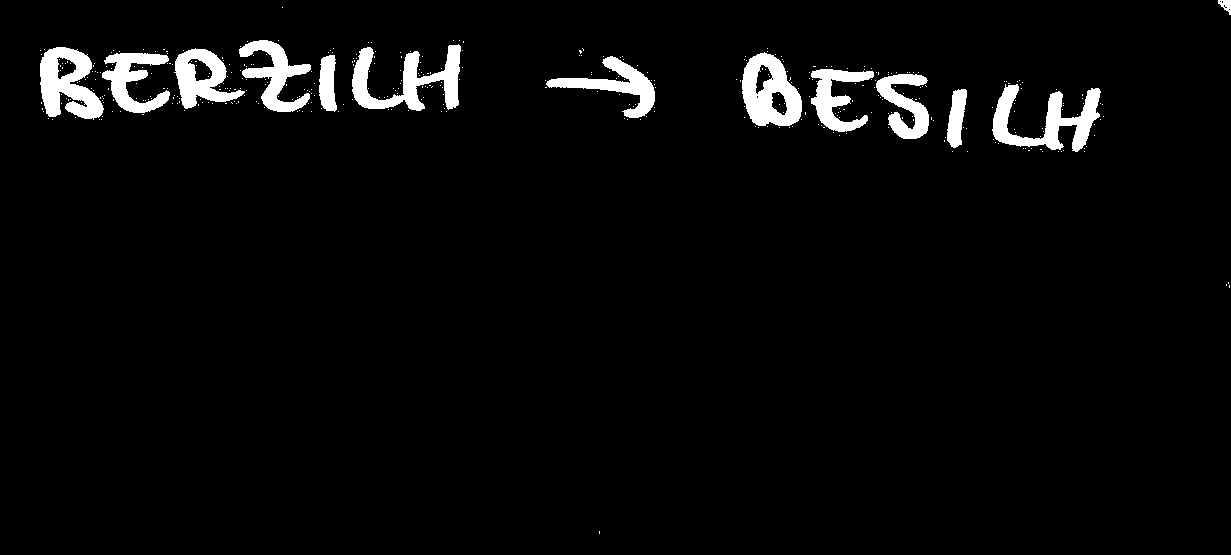 BERZILH → BESILH